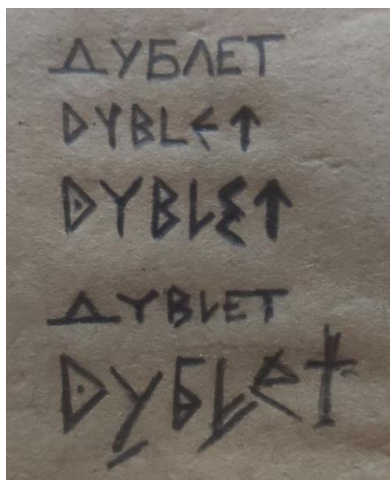 ДУБЛЕТ
DYBLE↑
DYBLE↑
ДYBLET
DyБLet